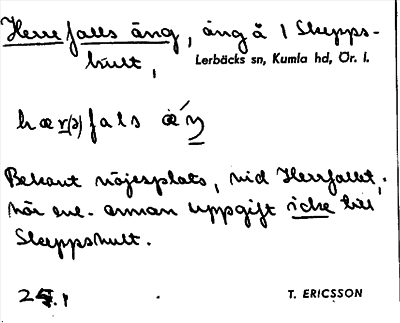 Herrfalls äng, äng å 1 Skepps-
hult, Lerbäcks sn, Kumla hd, Ör. l.
hær(ə)fals äŋ
Bekant nöjesplats, vid Herrfallet,
hör enl. annan uppgift icke till
Skeppshult.
T. ERICSSON